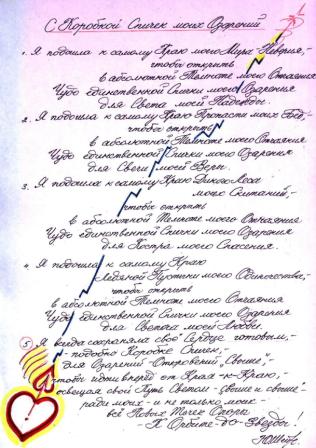 С Коробкой Спичек моих Озарений
1. Я подошла к самому Краю моего Мира Неверия,-
чтобы открыть
в абсолютной Темноте моего Отчаяния
Чудо единственной Спички моего Озарения
для Света моей Надежды.
2. Я подошла к самому Краю Пропасти моих Бед,-
чтобы открыть
в абсолютной Темноте моего Отчаяния
Чудо единственной Спички моего Озарения
для Свечи моей Веры.
3. Я подошла к самому Краю Дикого Леса
моих Скитаний,-
чтобы открыть
в абсолютной Темноте моего Отчаяния
Чудо единственной Спички моего Озарения
для Костра моего Спасения.
4. Я подошла к самому Краю
Ледяной Пустыни моего Одиночества,-
чтобы открыть
в абсолютной Темноте моего Отчаяния
Чудо единственной Спички моего Озарения
для Светоча моей Любви.
5. Я всегда сохраняла своё Сердце готовым,-
- подобно Коробке Спичек,-
для Озарений-Откровений "Свыше",-
чтобы идти вперёд от Края-к Краю,-
освещая свой Путь Светом-"свыше и свыше"
ради моих-и не только моих-
всё Новых Точек Опоры
К Орбите-до-Звезды!